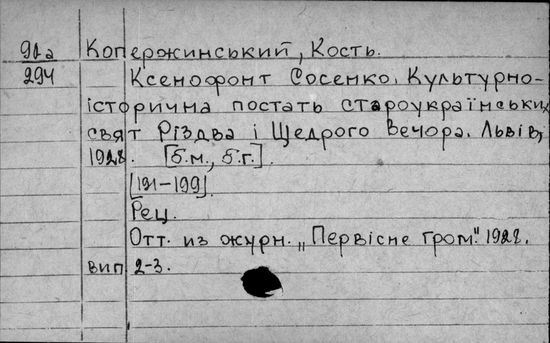 91a Копержинський, Кость.
294 Ксенофонт Сосенко. Культурно-
історична постать староукраїнських
свят Різдва і Щедрого Вечора. Львів,
1928. [б.м., б.г.].
[191-199].
Рец.
Отт. из журн. „Первісне гром." 1928.
вип 2-3.